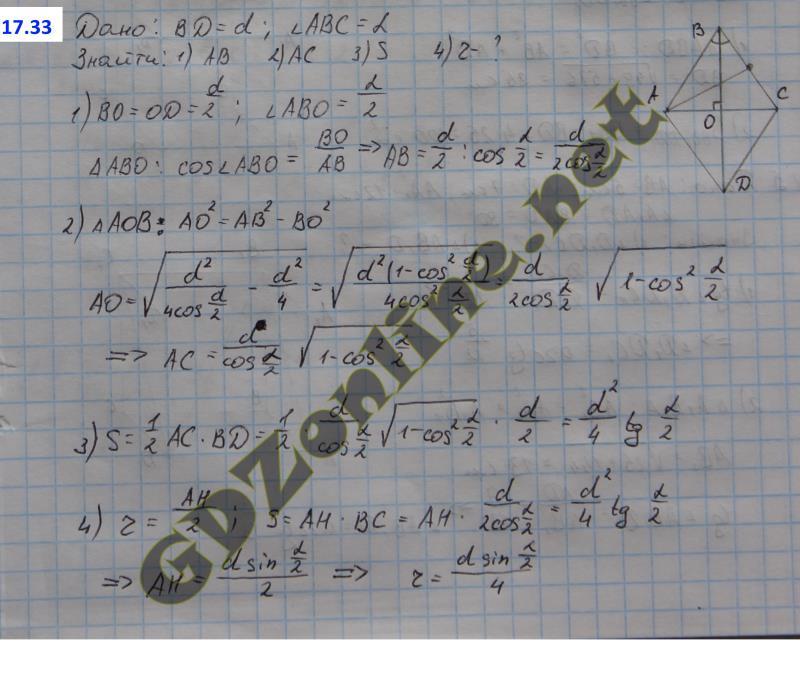 17.33
Дано: BD = d; ∠ABC = α
Знайти: 1) AB 2) AC 3) S 4) r - ?
1) BO = OD = d/2; ∠ABO = α/2
ΔABO: cos∠ABO = BO/AB => AB = d/2 : cos α/2 = d/(2cos α/2)
2) ΔAOB: AO² = AB² - BO²
AO = √(d²/(4cos α/2) - d²/4) = √(d²(1-cos² α/2)/(4cos² α/2)) = d/(2cos α/2) √(1-cos² α/2)
=> AC = d/(cos α/2) √(1-cos² α/2)
3) S = 1/2 AC · BD = 1/2 · d/(cos α/2) √(1-cos² α/2) · d/2 = d²/4 tg α/2
4) r = AH/2; S = AH · BC = AH · d/(2cos α/2) = d²/4 tg α/2
=> AH = (d sin α/2)/2 => r = (d sin α/2)/4
B
A
C
O
D
GDZonline.net